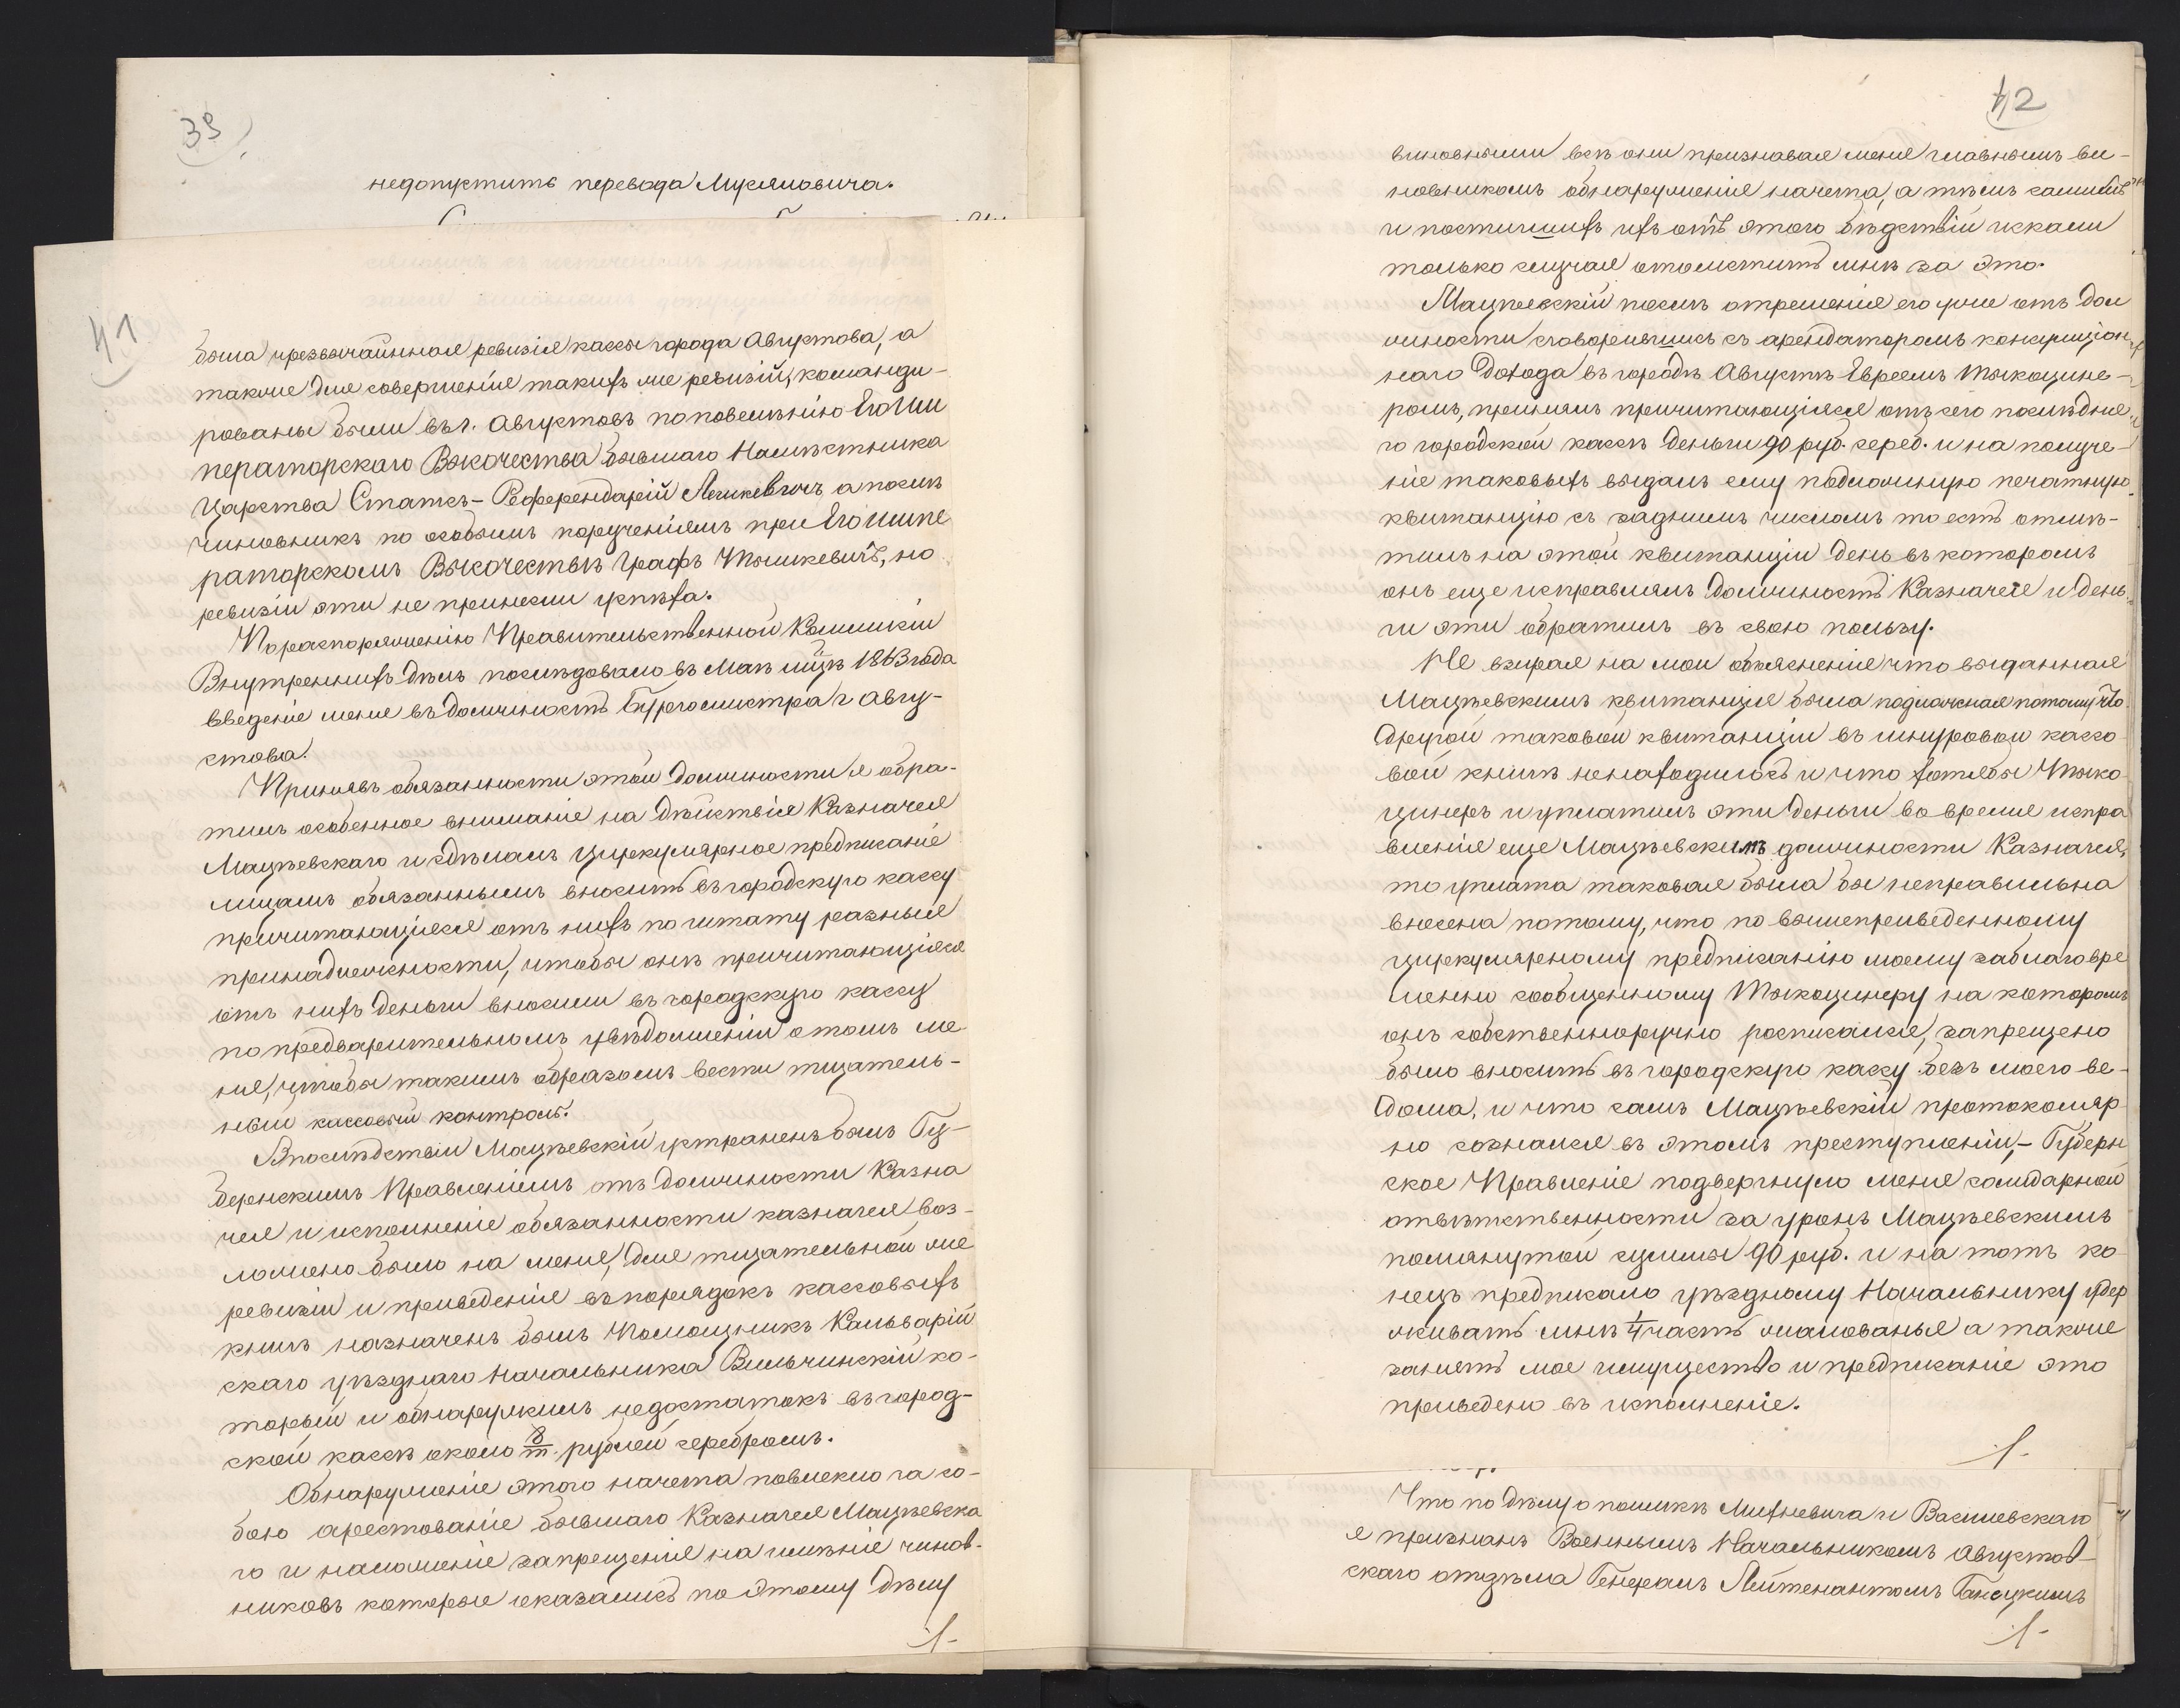 39
недопустить перевода Мукяновича.
41
была чрезвычайнная ревизія кассы города Августова, а
также для совершенія такихъ же ревизій, команди-
рованы были въ г. Августовъ по повеленію Его Им
ператорскаго Высочества бывшаго Наместника
Царства Статсъ-Референдарій а после
Чиновникъ по особымъ порученіямъ при Его Импе
раторскомъ Высочестве Графъ Тышкевичъ, но
ревизіи эти не принесли успеха.
По распоряженію Правительственной Коммисіи
Внутреннихъ Делъ последовало въ Мае м͠це 1863 года
введеніе меня въ должность Бургомистра г Авгу-
стова.
Принявъ обязанности этой должности я обра-
тилъ особенное вниманіе на действія Казначея
Мацѣевскаго и сделалъ циркулярное предписаніе
лицамъ обязаннымъ вносить въ городскую кассу
причитающіяся отъ нихъ по штату разныя
принадлежности, чтобы онѣ причитающіяся
отъ нихъ деньги вносили въ городскую кассу
по предварительномъ увѣдомленіи о томъ ме
ня, чтобы такимъ образомъ вести тщатель-
ный кассовый контроль.
Впослѣдствіи Мацѣевскій устраненъ былъ Гу-
бернскимъ Правленіемъ отъ должности Казна
чея и исполненіе обязанности казначея воз-
ложено было на меня, для тщательной же
ревизіи и приведенія въ порядокъ кассовыхъ
книгъ назначенъ былъ Помощникъ Кальварій
скаго уѣзднаго Начальника Вильчинскій ко-
торый и обнаружилъ недостатокъ въ город-
ской кассѣ около 8/т. рублей серебромъ.
Обнаруженіе этого начета повлекло за со-
бою арестованіе бывшаго Казначея Мацѣевска
го и наложеніе запрещенія на имѣніе чинов-
никовъ которые оказались по этому дѣлу
./-
42
виновными всѣ они признавая меня главнымъ ви-
новникомъ обнаруженія начета, а тѣмъ самымъ
и постигшихъ ихъ отъ этого бѣдствій искали
только случая отомстить мнѣ за это.
Мацѣевскій послѣ отрешенія его уже отъ дол
жности сговорившись съ арендаторомъ консумціон
наго дохода въ городѣ Августѣ Евреемъ Тыкоцине-
ромъ, принялъ причитающіяся отъ сего последня
го городской кассѣ деньги 90 руб. сереб. и на получе-
ніе таковыхъ выдалъ ему подложную печатную
квитанцію съ заднимъ числомъ то есть отмѣ-
тилъ на этой квитанціи день въ которомъ
онъ еще исправлялъ должность Казначея и день
ги эти обратилъ въ свою пользу.
Не взирая на мои объясненія что выданная
Мацѣевскимъ квитанція была подложная потому что
другой таковой квитанціи въ шнуровой кассо
вой книгѣ ненаходилось и что хотябы Тыко
цинеръ и уплатилъ эти деньги во время испра
вленія еще Мацѣевскимъ должности Казначея,
то уплата таковая была бы неправильна
внесена потому, что по вышеприведенному
циркулярному предписанію моему заблаговре
менно сообщенному Тыкоцинеру на которомъ
онъ собственноручно росписался, запрещено
было вносить въ городскую кассу безъ моего ве-
дома, и что самъ Мацѣевскій протоколяр
но сознался въ этомъ преступленіи,- Губерн
ское Правленіе подвергнуло меня солидарной
отвѣтственности за уронъ Мацѣевскимъ
помянутой суммы 90 руб. и на тотъ ко
нецъ предписало уѣздному Начальнику удер
живать мнѣ 1/4 часть жалованья а также
занять мое имущество и предписаніе это
приведено въ исполненіе.
./-
Что по дѣлу о поимкѣ Михневича и Василевскаго
я признанъ Военнымъ Начальникомъ Августов-
скаго отдѣла Генералъ Лейтенантомъ Ганецкимъ
./-